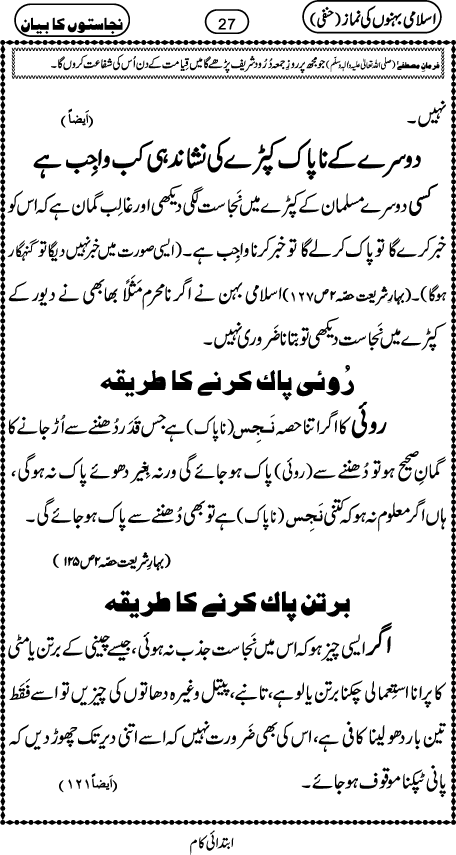 اسلامی بہنوں کی نماز (حنفی)
27
نجاستوں کا بیان
فرمانِ مصطفےٰ (صلی اللہ تعالیٰ علیہ واٰلہٖ وسلم) جو مجھ پر روزِ جمعہ دُرُود شریف پڑھے گا میں قیامت کے دن اُس کی شفاعت کروں گا۔
نہیں۔ (اَیضاً)
دوسرے کے ناپاک کپڑے کی نشاندہی کب واجِب ہے
کسی دوسرے مسلمان کے کپڑے میں نَجاست لگی دیکھی اور غالِب گمان ہے کہ اس کو
خبر کرے گا تو پاک کرلے گا تو خبر کرنا واجب ہے۔ (ایسی صورت میں خبر نہیں دیگا تو گنہگار
ہوگا)۔ (بہارِ شریعت حصّہ ۲ ص ۱۲۷) اسلامی بہن نے اگر نامحرم مَثَلًا بھابھی نے دیور کے
کپڑے میں نَجاست دیکھی تو بتانا ضَروری نہیں۔
رُوئی پاک کرنے کا طریقہ
روئی کا اگر اتنا حصہ نَجِس (ناپاک) ہے جس قَدَر دُھننے سے اُڑ جانے کا
گمانِ صحیح ہو تو دُھننے سے (روئی) پاک ہوجائے گی ورنہ بِغیر دھوئے پاک نہ ہوگی،
ہاں اگر معلوم نہ ہو کہ کتنی نَجِس (ناپاک) ہے تو بھی دُھننے سے پاک ہوجائے گی۔
(بہارِ شریعت حصّہ ۲ ص ۱۲۵)
برتن پاک کرنے کا طریقہ
اگر ایسی چیز ہو کہ اس میں نَجاست جذب نہ ہوئی، جیسے چینی کے برتن یا مٹی
کا پرانا استِعمالی چکنا برتن یا لوہے، تانبے، پیتل وغیرہ دھاتوں کی چیزیں تو اسے فَقَط
تین بار دھولینا کافی ہے، اس کی بھی ضَرورت نہیں کہ اسے اتنی دیر تک چھوڑ دیں کہ
پانی ٹپکنا موقوف ہوجائے۔ (اَیضاً ۱۲۱)
ابتدائی کام